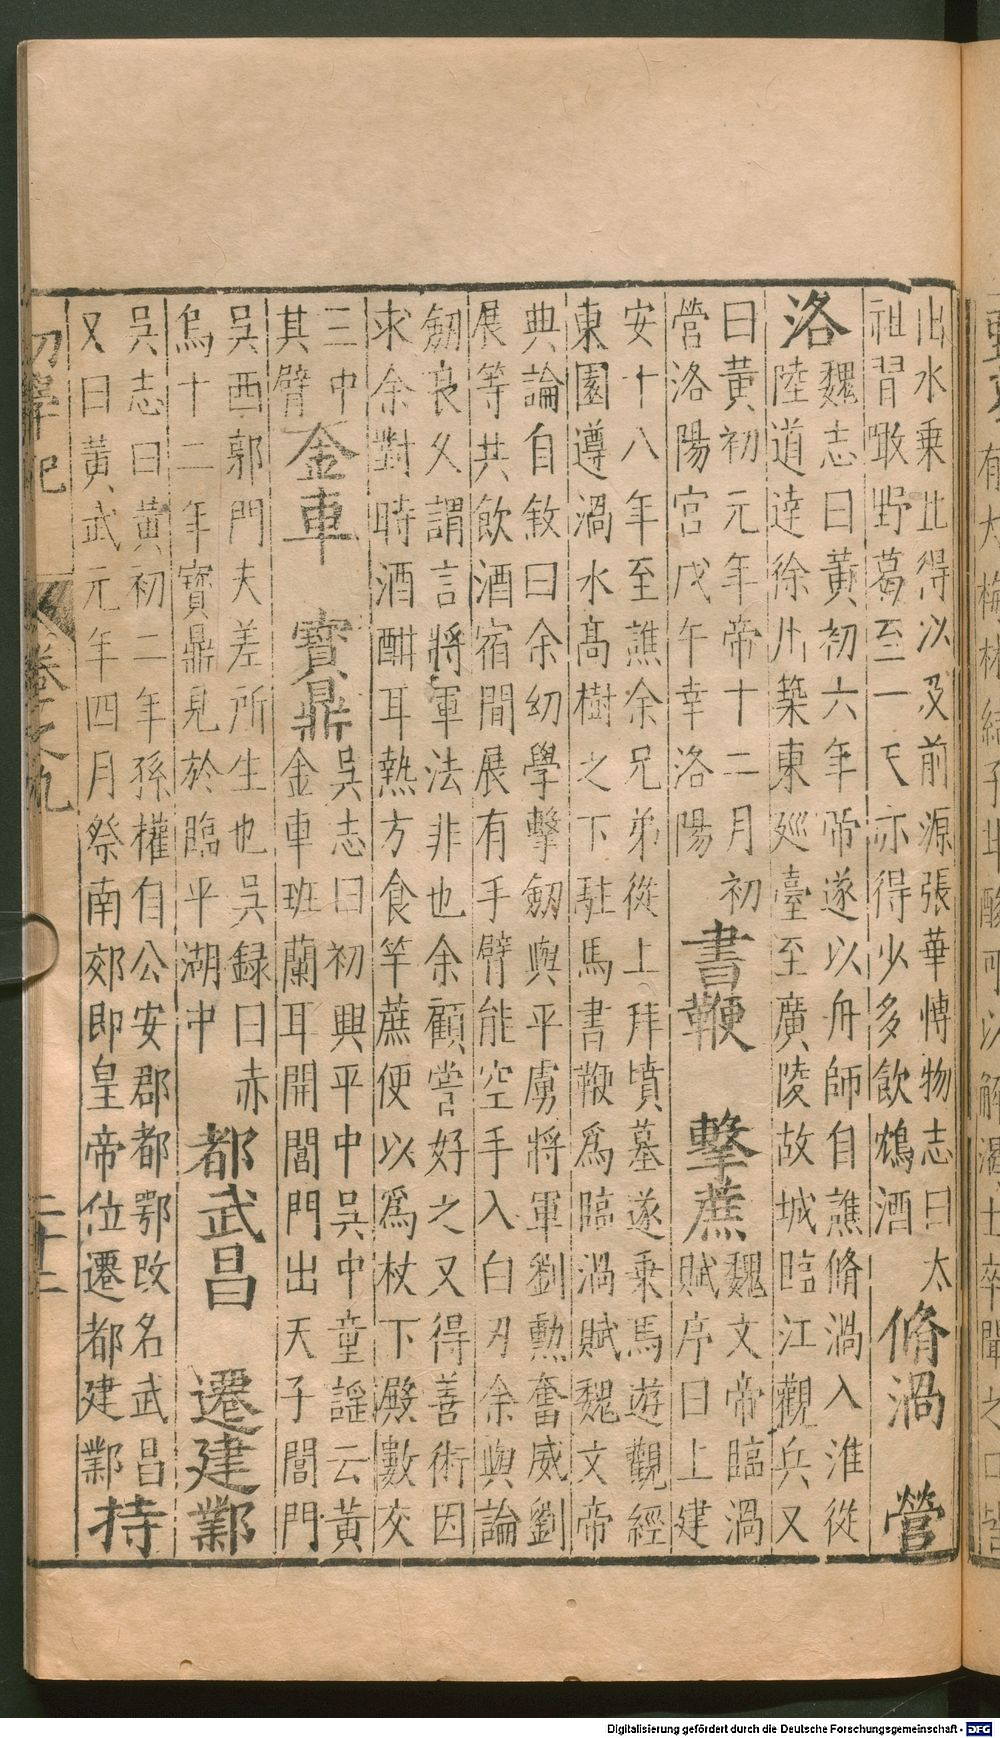 有大梅林結子甘酸可以解渴士卒聞之口皆
出水乗此得以及前源張華博物志曰太
祖習噉野葛至一尺亦得少多飲鴆酒
脩渦 營
洛
魏志曰黃初六年帝遂以舟師自譙脩渦入淮從
陸道逹徐州築東廵臺至廣陵故城臨江觀兵又
曰黃初元年帝十二月初
營洛陽宫戊午幸洛陽
書鞭 擊蔗
魏文帝臨渦
賦序曰上建
安十八年至譙余兄弟從上拜墳墓遂乗馬遊觀經
東園遵渦水髙樹之下駐馬書鞭爲臨渦賦魏文帝
典論自敘曰余幼學擊劒與平虜將軍劉勲奮威劉
展等共飲酒宿聞展有手臂能空手入白刃余與論
劒良久謂言將軍法非也余顧嘗好之又得善術因
求余對時酒酣耳熱方食竿蔗便以爲杖下殿數交
三中
其臂
金車 寶鼎
吳志曰初興平中吳中童謡云黃
金車班蘭耳開閶門出天子閶門
吳西郭門夫差所生也吳録曰赤
烏十二年寶鼎見於臨平湖中
都武昌 遷建鄴
吳志曰黃初二年孫權自公安郡都鄂改名武昌
又曰黃武元年四月祭南郊即皇帝位遷都建鄴
持
初學記 卷之九
Digitalisierung gefördert durch die Deutsche Forschungsgemeinschaft - DFG